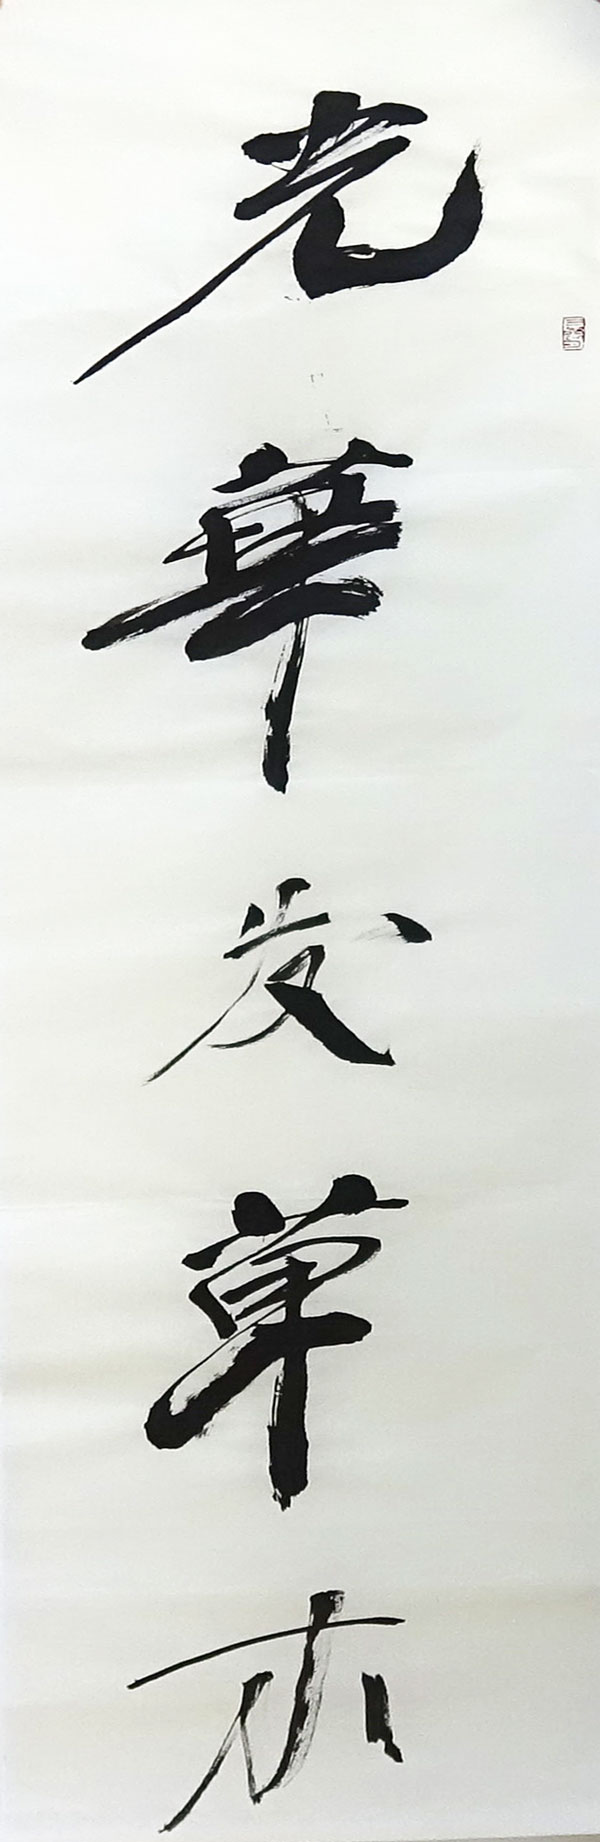 光華发草木